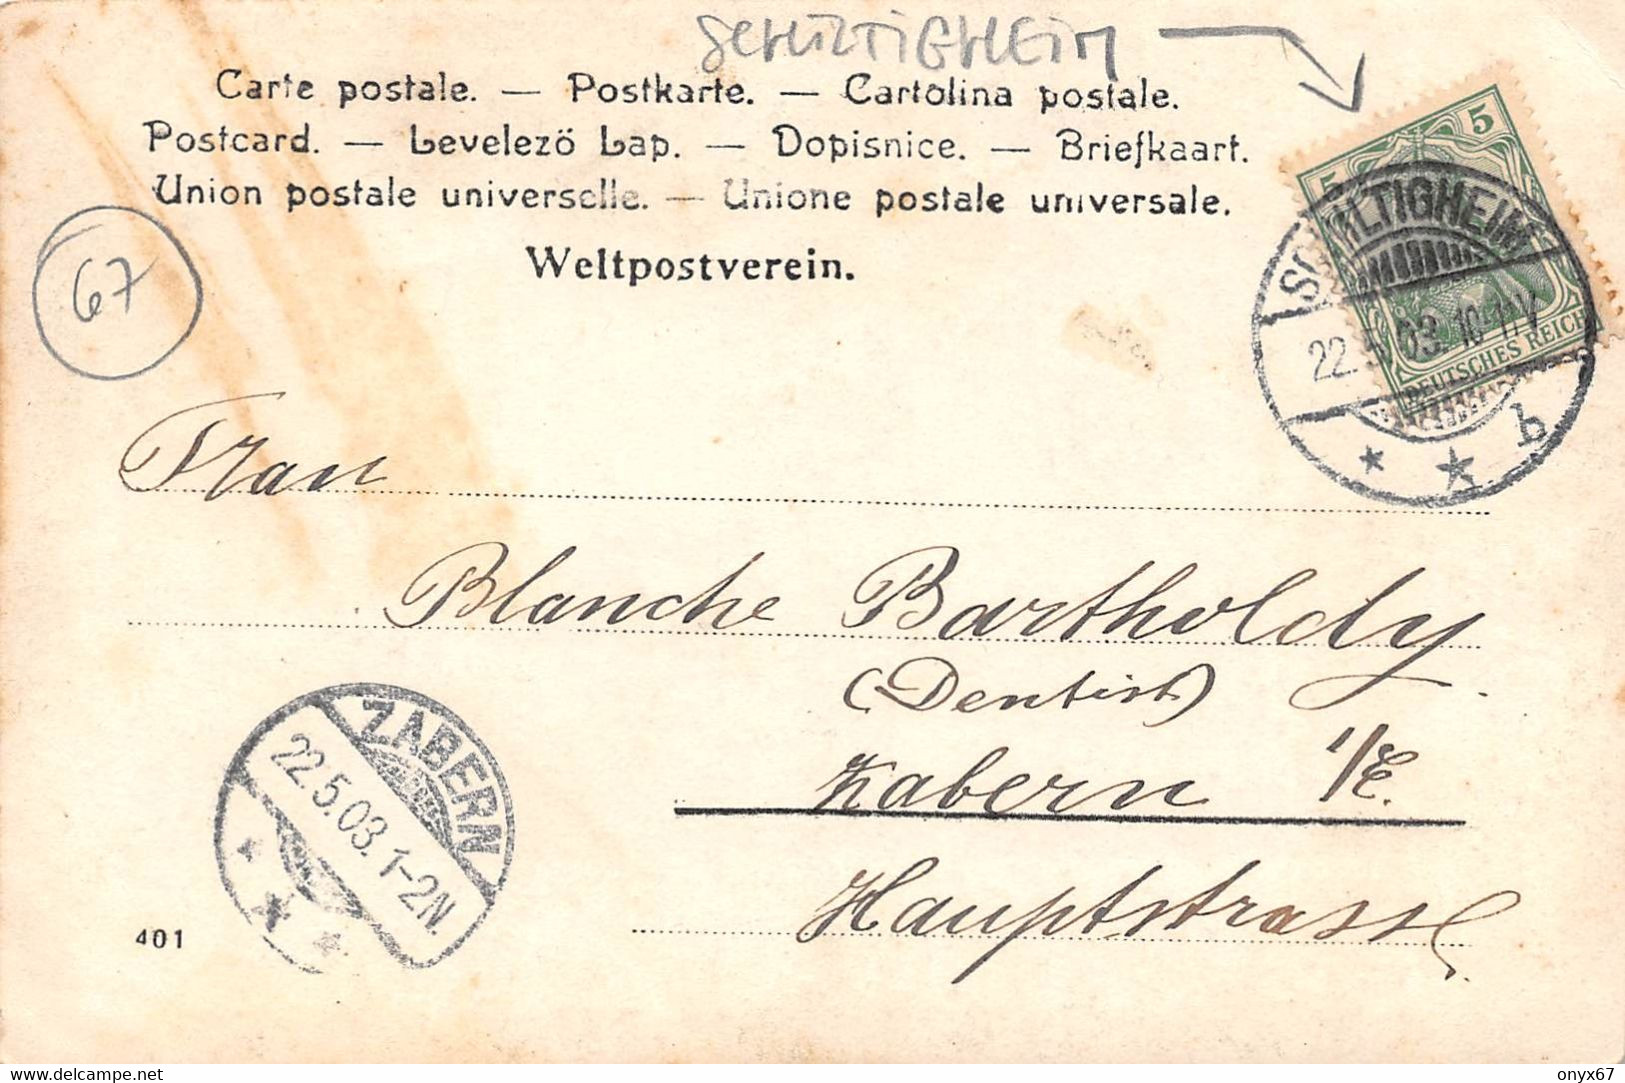 SCHILTIGHEIM
Carte postale. — Postkarte. — Cartolina postale.
Postcard. — Levelező Lap. — Dopisnice. — Briefkaart.
Union postale universelle. — Unione postale universale.
Weltpostverein.
67
5 5
DEUTSCHES REICH
SCHILTIGHEIM
22.5.03. 10-11V
b
Frau
Blanche Bartholdy
(Dentist)
Zabern i/E.
Hauptstrasse
ZABERN
22.5.03. 1-2N.
401
delcampe.net
onyx67